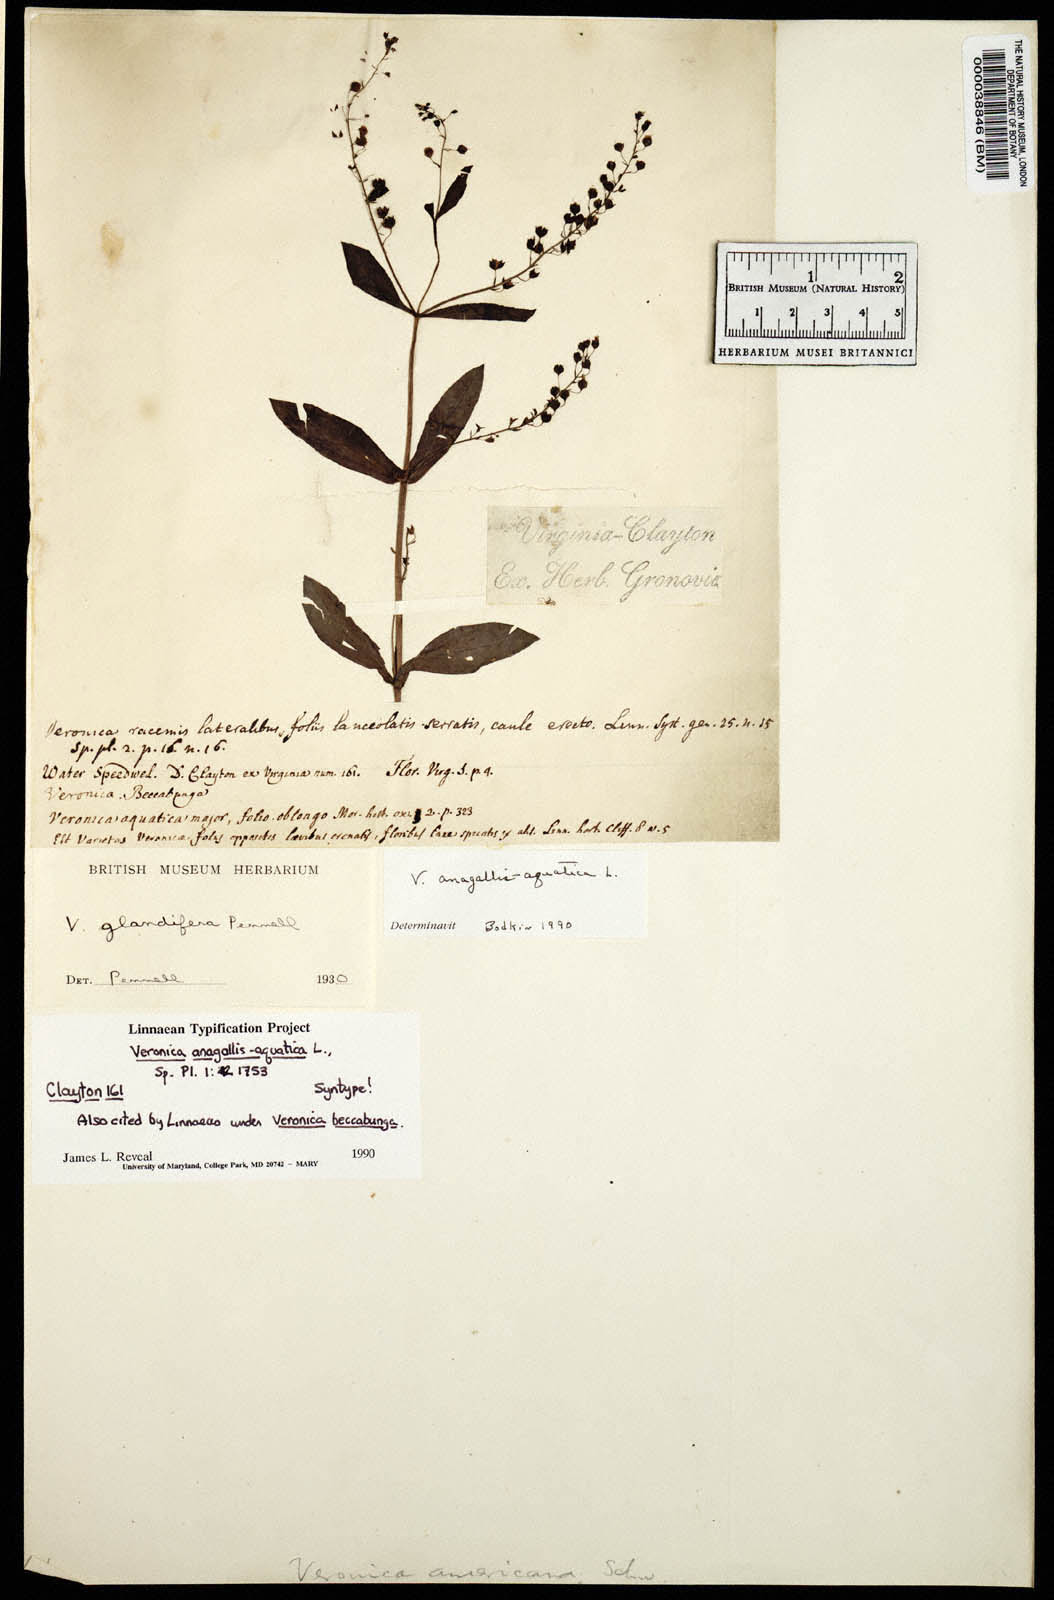 THE NATURAL HISTORY MUSEUM, LONDON
DEPARTMENT OF BOTANY
000038846 (BM)
1 2
BRITISH MUSEUM (NATURAL HISTORY)
1 2 3 4 5
HERBARIUM MUSEI BRITANNICI
Virginia-Clayton
Ex. Herb. Gronovii
Veronica racemis lateralibus, foliis lanceolatis serratis, caule erecto. Linn. Syst. gen. 25. n. 15
Sp. pl. 2. p. 16. n. 16.
Water Speedwel. D. Clayton ex Virginia num. 161. Flor. Virg. p. 4.
Veronica. Beccabunga
Veronica aquatica major, folio oblongo Mor. hist. 2. p. 323
Est Varietas Veronica foliis oppositis laevibus crenatis, floribus laxe spicatis ex alis. Linn. hort. Cliff. 8 n. 5
BRITISH MUSEUM HERBARIUM
V. glandifera Pennell
DET. Pennell 1930
V. anagallis-aquatica L.
Determinavit Bodkin 1990
Linnaean Typification Project
Veronica anagallis-aquatica L.,
Sp. Pl. 1: 12 1753
Clayton 161 Syntype!
Also cited by Linnaeus under Veronica beccabunga.
James L. Reveal 1990
University of Maryland, College Park, MD 20742 – MARY
Veronica americana Schw.